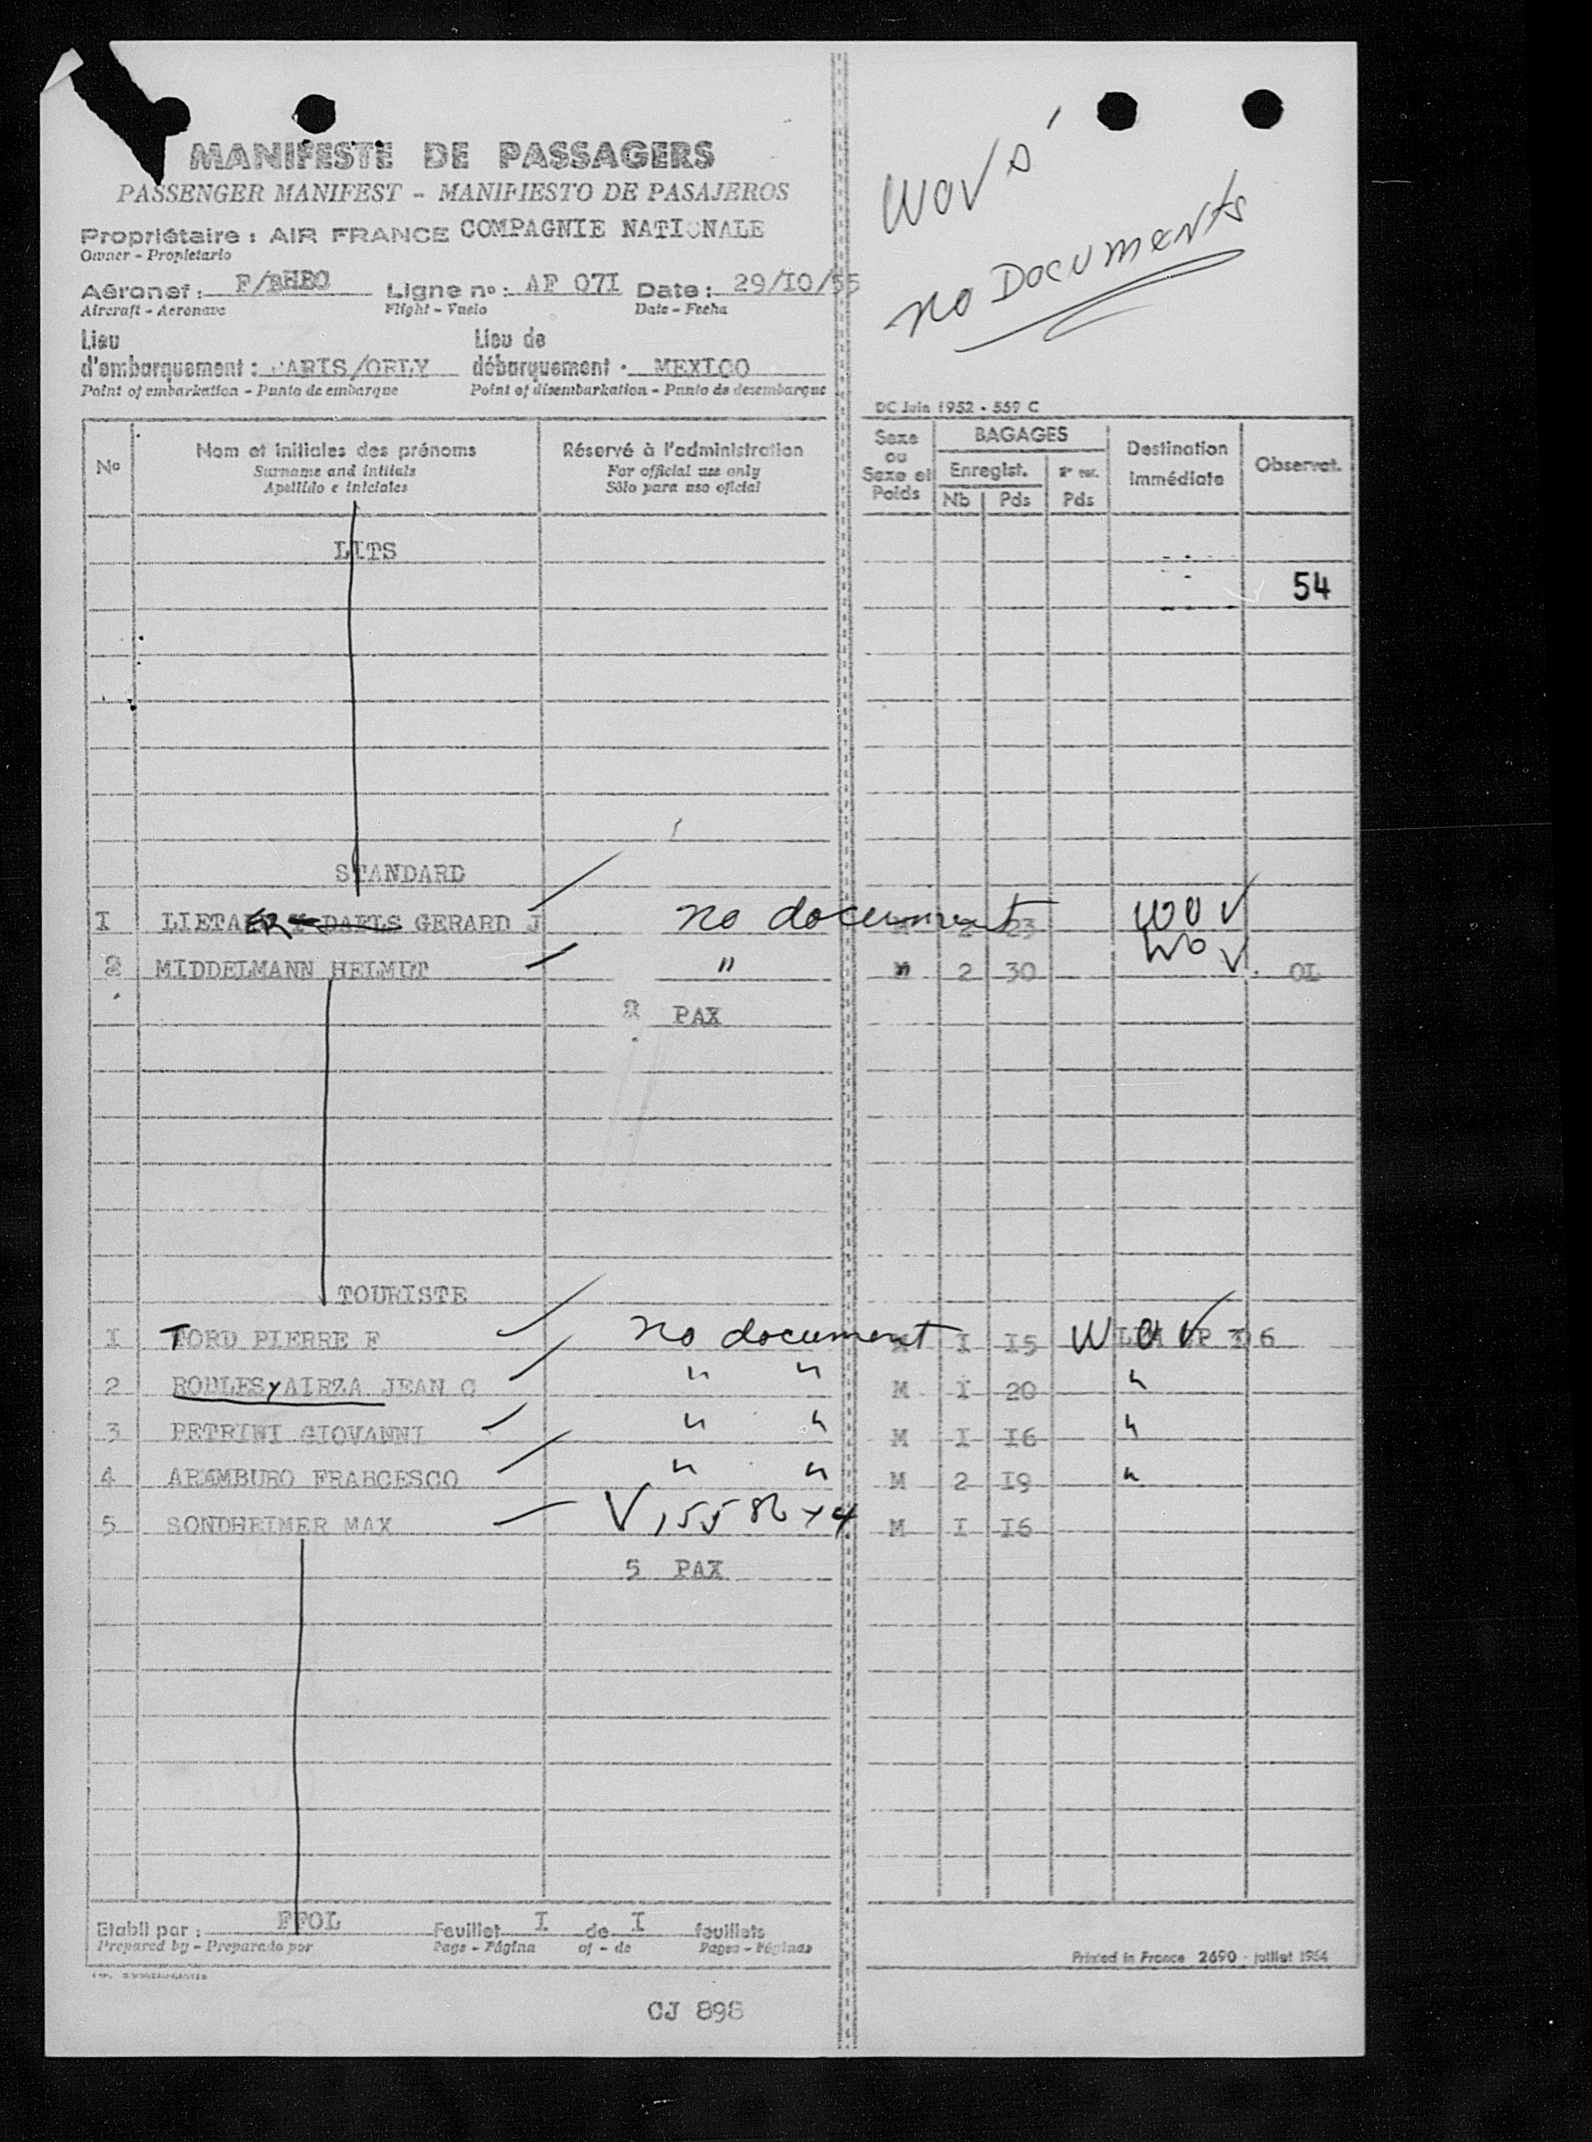 MANIFESTE DE PASSAGERS
PASSENGER MANIFEST - MANIFIESTO DE PASAJEROS
Propriétaire : AIR FRANCE COMPAGNIE NATIONALE
Owner - Propietario
Aéronef : F/BHBO Ligne no : AF 07I Date : 29/IO/55
Aircraft - Aeronave Flight - Vuelo Date - Fecha
Lieu d'embarquement : PARIS/ORLY Lieu de débarquement : MEXICO
Point of embarkation - Punto de embarque Point of disembarkation - Punto de desembarque
WOV's
no DOCUMENTS
DC Juin 1952 - 559 C
No Nom et initiales des prénoms Réservé à l'administration Sexe ou Sexe et Poids BAGAGES Destination immédiate Observat.
Surname and initials For official use only Enregist.
Apellido e iniciales Sólo para uso oficial Nb Pds Pds
LITS
54
STANDARD
I LIETAER GERARD J no document 2 23 WOV
2 MIDDELMANN HELMUT " M 2 30 WOV OL
2 PAX
TOURISTE
I TORD PIERRE F no document M I I5 WOV
2 ROBLES y AIRZA JEAN C " " M I 20 "
3 PETRINI GIOVANNI " " M I I6 "
4 ARAMBURO FRANCESCO " " M 2 I9 "
5 SONDHEIMER MAX M I I6
5 PAX
Etabli par : FFOL Feuillet I de I feuillets
Prepared by - Preparado por Page - Página of - de Pages - Páginas
Printed in France 2690 - juillet 1954
CJ 898